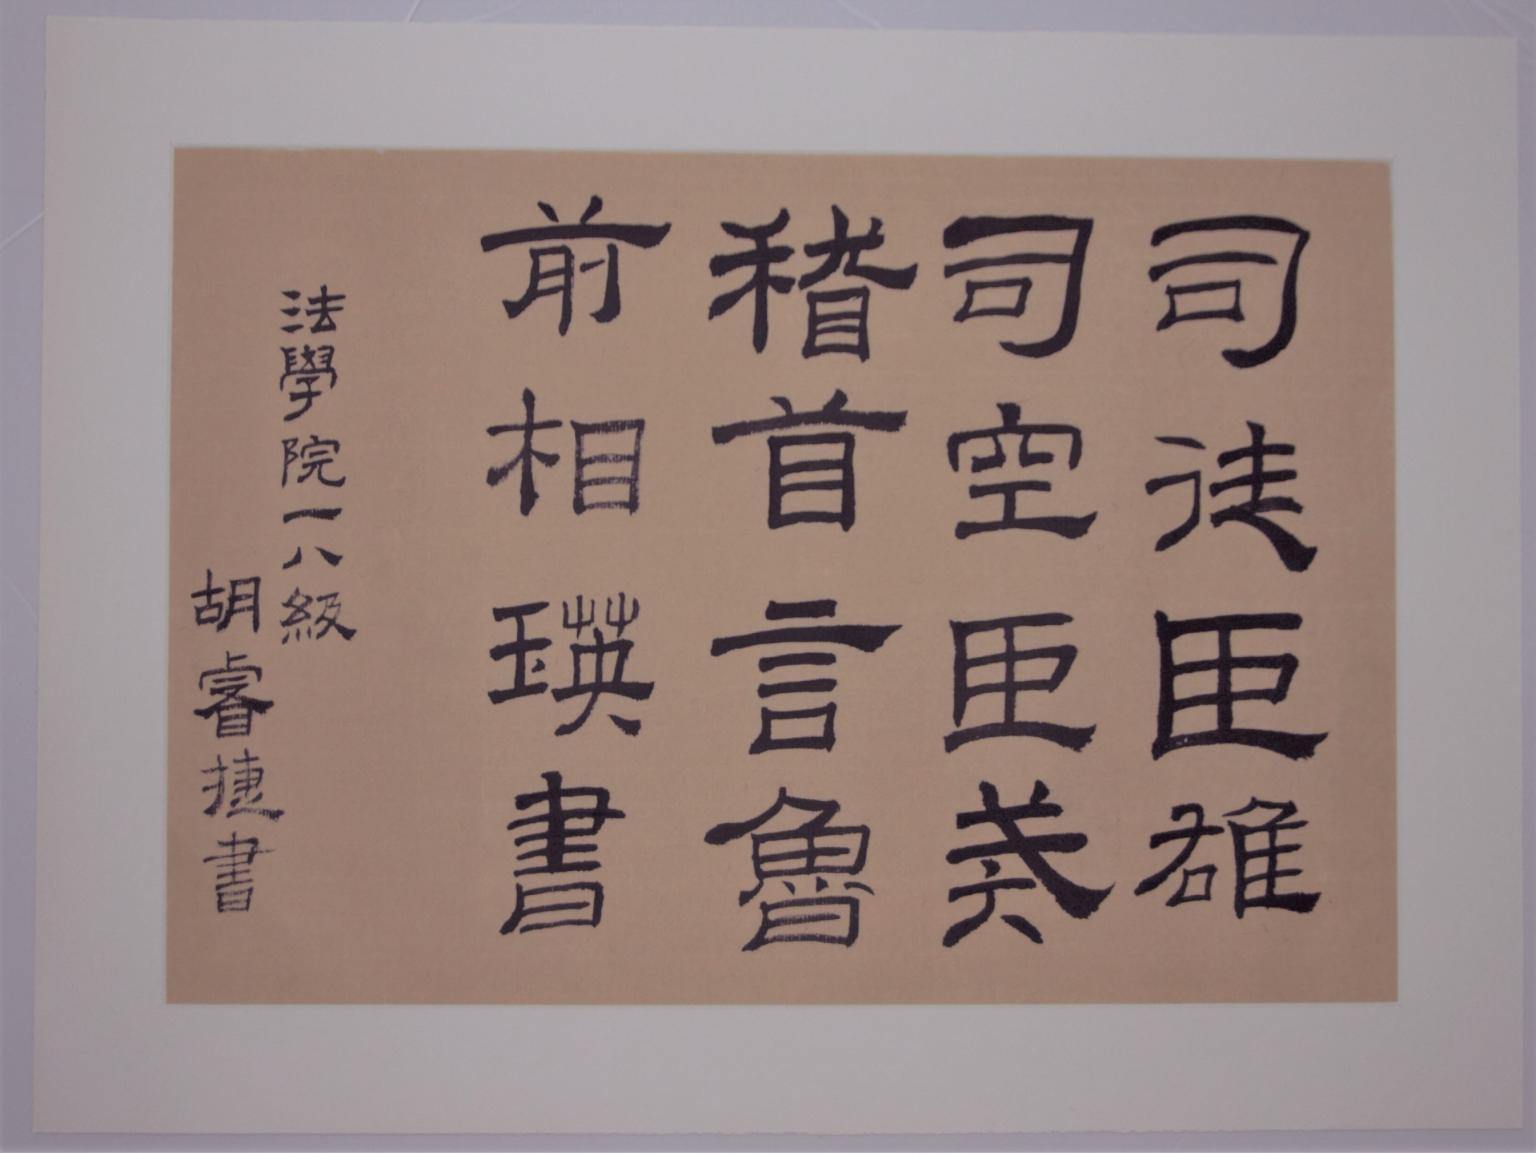 司徒臣雄
司空臣戒
稽首言魯
前相瑛書
法學院一八級
胡睿捷書